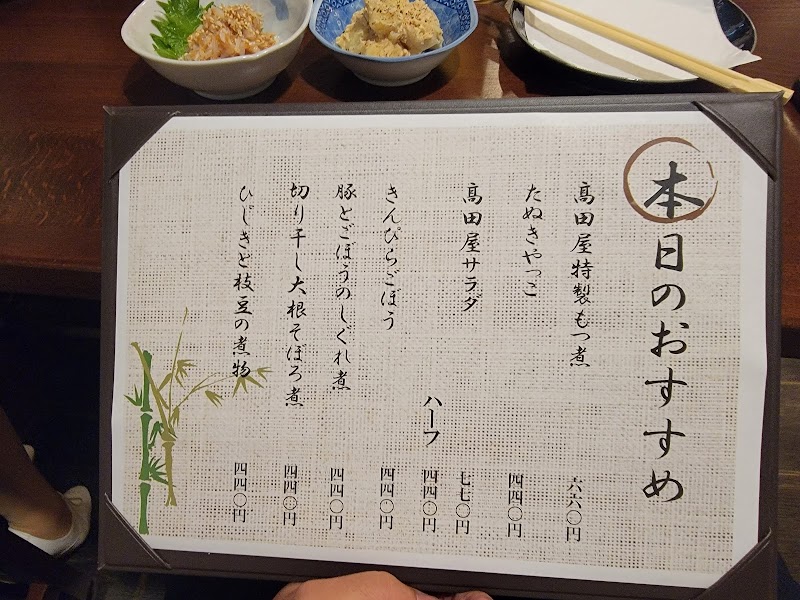 本日のおすすめ
髙田屋特製もつ煮 六六〇円
たぬきやっこ 四四〇円
髙田屋サラダ 七七〇円
ハーフ 四四〇円
きんぴらごぼう 四四〇円
豚とごぼうのしぐれ煮 四四〇円
切り干し大根そぼろ煮 四四〇円
ひじきと枝豆の煮物 四四〇円